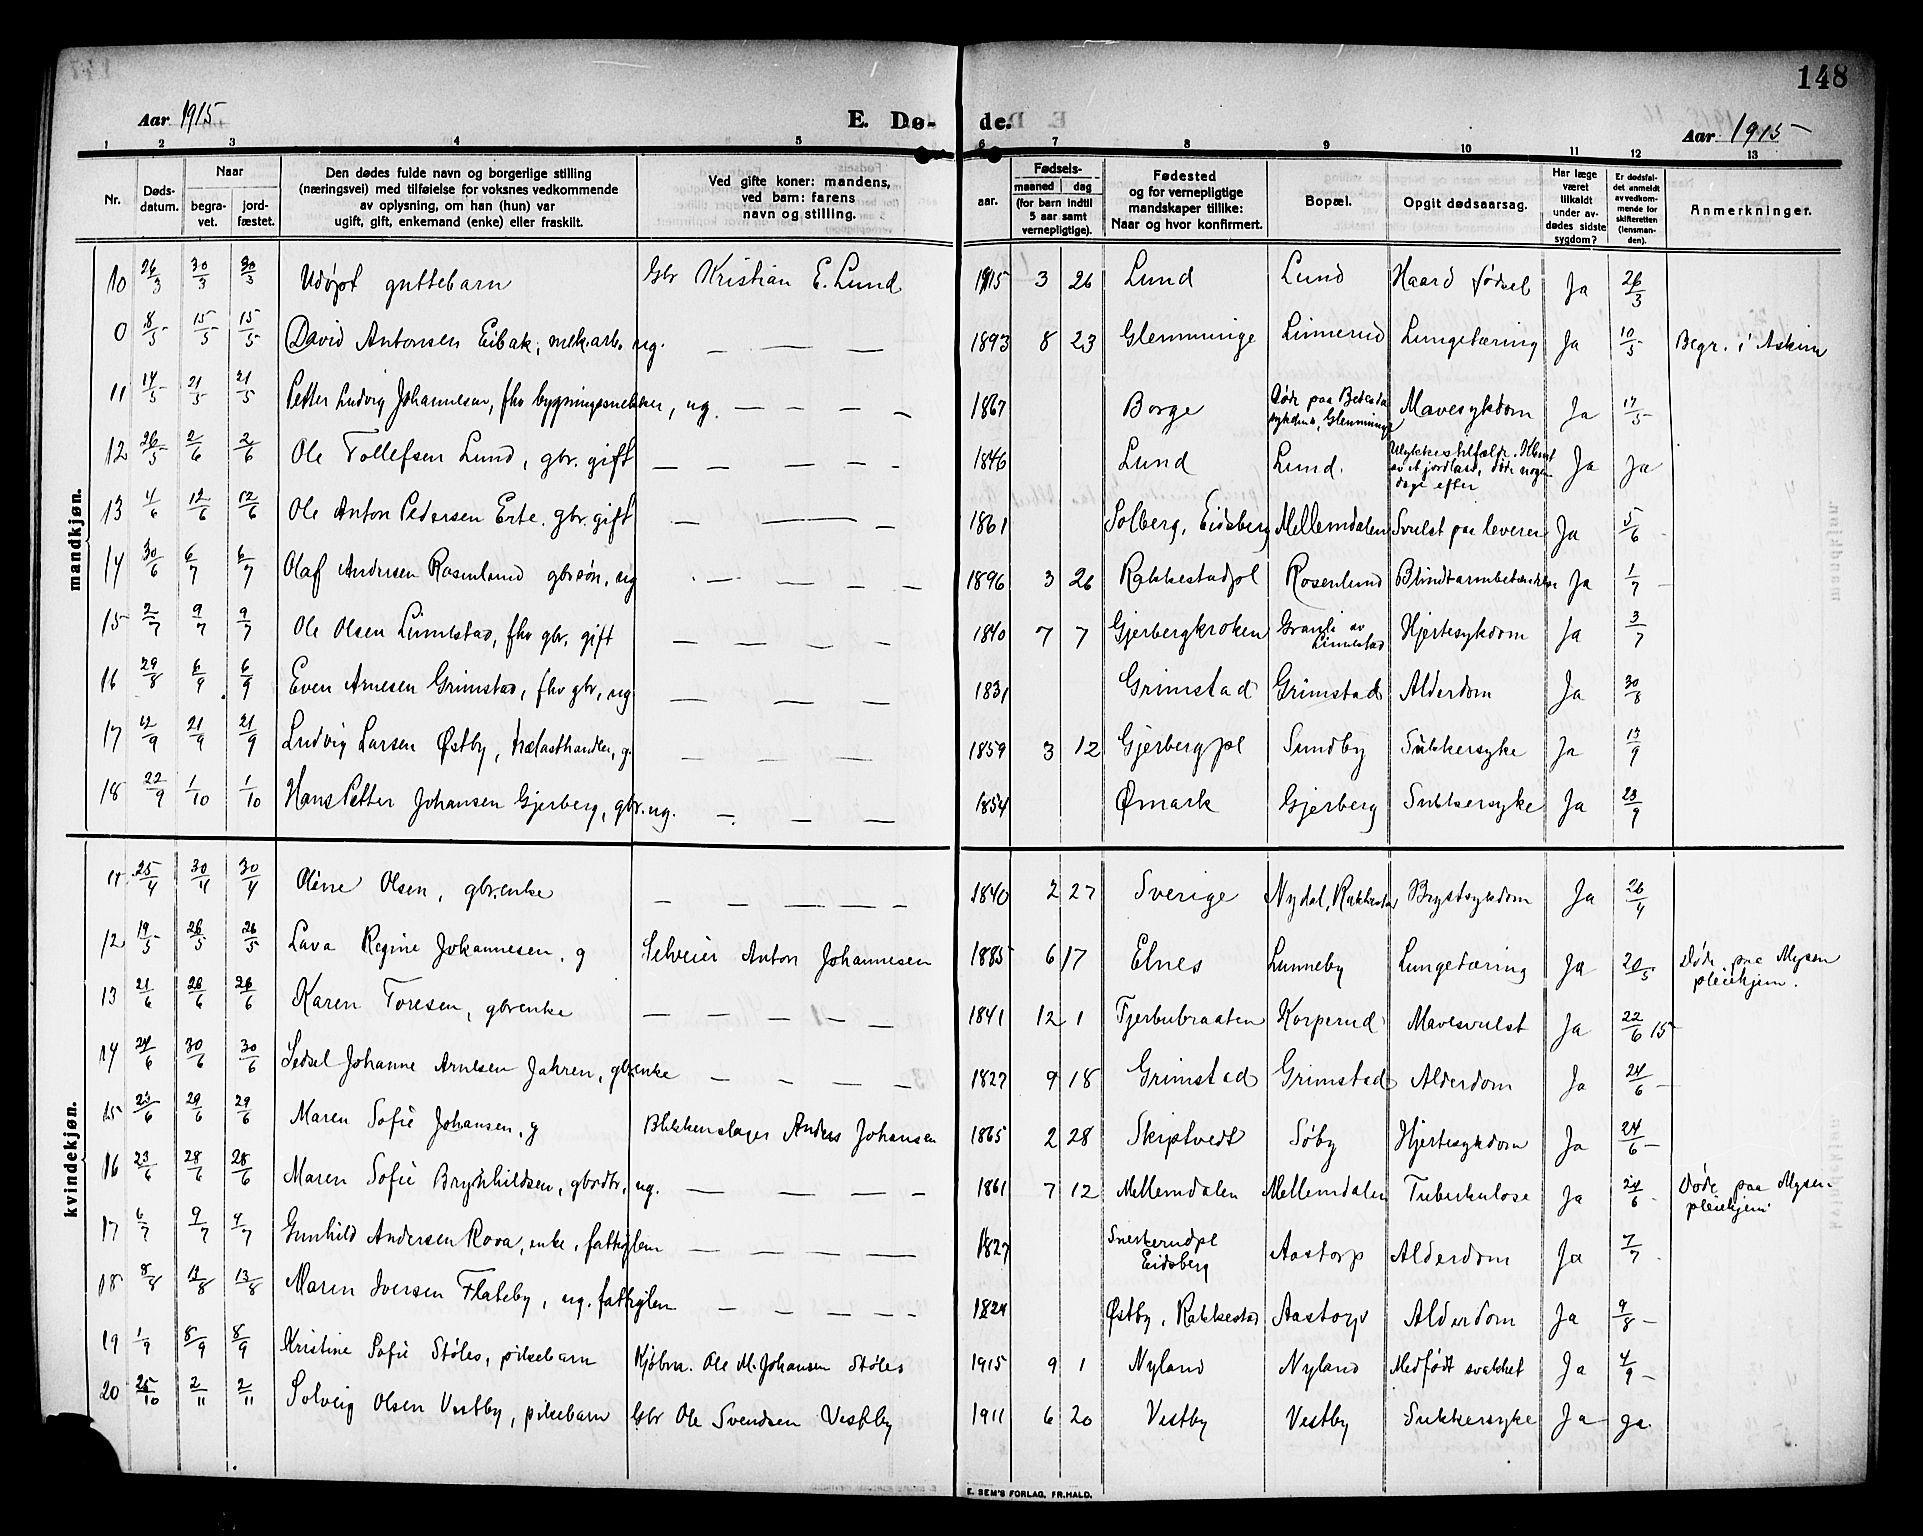 148
Aar 1915
E. Dø- de.
Aar 1915
1 2 3 4 5 6 7 8 9 10 11 12 13
Nr. Døds-datum. Naar begra-vet. jord-fæstet. Den dødes fulde navn og borgerlige stilling (næringsvei) med tilføielse for voksnes vedkommende av oplysning, om han (hun) var ugift, gift, enkemand (enke) eller fraskilt. Ved gifte koner: mandens, ved barn: farens navn og stilling. Fødsels- aar. maaned dag (for barn indtil 5 aar samt vernepligtige). Fødested og for vernepligtige mandskaper tillike: Naar og hvor konfirmert. Bopæl. Opgit dødsaarsag. Har læge været tilkaldt under av-dødes sidste sygdom? Er dødsfal-det anmeldt av vedkom-mende for skifteretten (lensman-den). Anmerkninger.
mandkjøn.
10 26/3 30/3 30/3 Udøpt guttebarn Gbr Kristian E. Lund 1915 3 26 Lund Lund Haard fødsel Ja 26/3
0 8/5 15/5 15/5 David Antonsen Eibak, mek.arb. ug. — — — 1893 8 23 Glemminge Linnerud Lungetæring Ja 10/5 Begr. i Askim
11 14/5 21/5 21/5 Petter Ludvig Johannesen, fhv bygningssnekker, ug. — — — — 1867 Borge Døde paa Betesda sykehus, Glemminge Mavesykdom Ja 17/5
12 26/5 2/6 2/6 Ole Tollefsen Lund, gbr. gift — — — — — 1846 Lund Lund. Ulykkestilfælde. Klemt av et jordlass, døde nogen dage efter Ja Ja
13 4/6 12/6 12/6 Ole Anton Pedersen Erte. gbr. gift — — — 1861 Solberg, Eidsberg Mellemdalen Svulst paa leveren Ja 5/6
14 30/6 6/7 6/7 Olaf Andersen Rosenlund gbrsøn, ug — — — — 1896 3 26 Rakkestadpl Rosenlund Blindtarmbetændelse Ja 1/7
15 2/7 9/7 9/7 Ole Olsen Linnestad, fhv gbr, gift — — — — 1840 7 7 Gjerbergkroken Granli av Linnestad Hjertesykdom Ja 3/7
16 29/8 6/9 6/9 Even Arnesen Grimstad, fhv gbr, ug — — — 1831 Grimstad Grimstad Alderdom Ja 30/8
17 12/9 21/9 21/9 Ludvig Larsen Østby, trælasthandler, g. — — — 1859 3 12 Gjerbergpl Sundby Sukkersyke Ja 13/9
18 22/9 1/10 1/10 Hans Petter Johansen Gjerberg, gbr. ug. — — — 1854 Ømark Gjerberg Sukkersyke Ja 23/9
kvindekjøn.
11 25/4 30/4 30/4 Oline Olsen, gbrenke — — — — — 1840 2 27 Sverige Nydal, Rakkestad Brystsykdom Ja 26/4
12 19/5 26/5 26/5 Lava Regine Johannesen, g Selveier Anton Johannesen 1885 6 17 Elnes Lunneby Lungetæring Ja 20/5 Døde paa Mysen pleiehjem.
13 21/6 26/6 26/6 Karen Toresen, gbrenke — — — — — 1841 12 1 Tjerbubraaten Korperud Mavesvulst Ja 22/6 15
14 24/6 30/6 30/6 Sedsel Johanne Arnesen Jahren, gbrenke — — — — 1827 9 18 Grimstad Grimstad Alderdom Ja 24/6
15 23/6 29/6 29/6 Maren Sofie Johansen, g Blikkenslager Anders Johansen 1865 2 28 Skiptvedt Søby Hjertesykdom Ja 24/6
16 23/6 28/6 28/6 Maren Sofie Brynhildsen, gbrdtr, ug. — — — — 1861 7 12 Mellemdalen Mellemdalen Tuberkulose Ja 24/6 Døde paa Mysen pleiehjem
17 6/7 9/7 9/7 Gunhild Andersen Rova, enke, fattiglem — — — — 1827 Snesrudpl Eidsberg Aastorp Alderdom Ja 7/7
18 8/8 13/8 13/8 Maren Iversen Flateby, ug. fattiglem — — — — — 1824 Østby, Rakkestad Aastorp Alderdom Ja 9/8
19 1/9 8/9 8/9 Kristine Sofie Støles, pikebarn Kjøbm. Ole M. Johansen Støles 1915 9 1 Nyland Nyland Medfødt svakhet Ja 4/9
20 25/10 2/11 2/11 Solveig Olsen Vestby, pikebarn Gbr Ole Svendsen Vestby 1911 6 20 Vestby Vestby Sukkersyke Ja Ja
E. SEM'S FORLAG, FR.HALD.